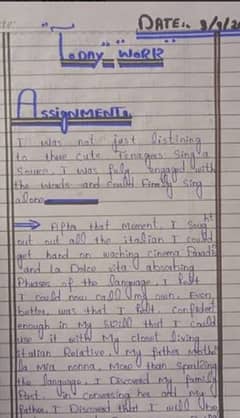 DATE:. 8/9/20
"TODAY WORK"
ASSIGNMENT:
I was not just listining
to those cute Tenagers Sing a
Source, I was fuly engaged with
the words and could Finaly sing
alone
⇒ After that moment, I Sought
out out all the italian I could
get hand on waching cinema Paradi
and La Dolce vita absorbing
Phases of the language, I felt
I could now call my own. Even
better, was that I felt, Confident
enough in My Skill that I could
use it with My closet living
italian Relative, My father mothe
la mia nonna, More than Speaking
the language, I Discoved My family
Past. In conversing her and My
father, I Discoved that I will be